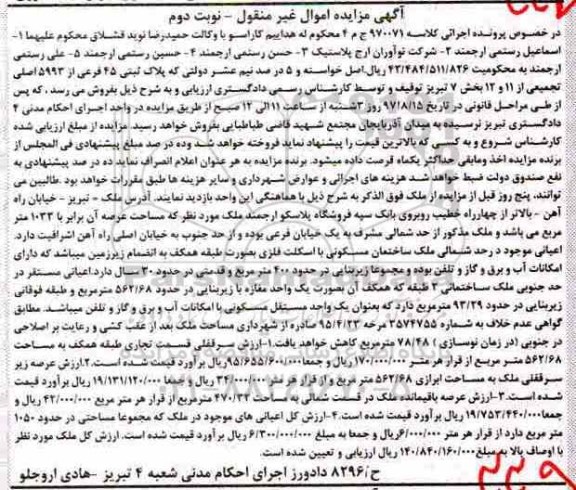 آگهی مزایده اموال غیر منقول - نوبت دوم
در خصوص پرونده اجرائی کلاسه ۹۷۰۰۷۱ ج م ۴ محکوم له هدایم کاراسو با وکالت حمیدرضا نوید قشلاق محکوم علیهما ۱-
اسماعیل رستمی ارجمند ۲- شرکت نوآوران ارج پلاستیک ۳- حسن رستمی ارجمند ۴- حسین رستمی ارجمند ۵- علی رستمی
ارجمند به محکومیت ۴۳/۴۸۴/۵۱۱/۸۲۶ ریال.اصل خواسته و ۵ در صد نیم عشر دولتی که پلاک ثبتی ۴۵ فرعی از ۵۹۹۳ اصلی
تجمیعی از ۱۱ و ۱۲ بخش ۷ تبریز توقیف و توسط کارشناس رسمی دادگستری ارزیابی و به شرح ذیل بفروش می رسد ، که پس
از طی مراحل قانونی در تاریخ ۹۷/۸/۱۵ روز ۳شنبه از ساعت ۱۱الی ۱۲ صبح از طریق مزایده در واحد اجرای احکام مدنی ۴
دادگستری تبریز نرسیده به میدان آذربایجان مجتمع شهید قاضی طباطبایی بفروش خواهد رسید. مزایده از مبلغ ارزیابی شده
کارشناس شروع و به کسی که بالاترین قیمت را پیشنهاد نماید فروخته خواهد شد وده در صد مبلغ پیشنهادی فی المجلس از
برنده مزایده اخذ ومابقی حداکثر یکماه فرصت داده میشود. برنده مزایده به هر عنوان اعلام انصراف نماید ده در صد پیشنهادی به
نفع صندوق دولت ضبط خواهد شد هزینه های اجرائی و عوارض شهرداری و سایر هزینه ها طبق مقررات خواهد بود .طالبین می
توانند، پنج روز قبل از مزایده از ملک فوق الذکر به شرح ذیل با هماهنگی این واحد بازدید نمایند. آدرس ملک - تبریز - خیابان راه
آهن - بالاتر از چهارراه خطیب روبروی بانک سپه فروشگاه پلاسکو ارجمند ملک مورد نظر که مساحت عرصه آن برابر با ۱۰۳۳ متر
مربع می باشد و ملک مذکور از حد شمالی مشرف به یک خیابان فرعی بوده و از حد جنوب به خیابان اصلی راه آهن اشرافیت دارد.
اعیانی موجود در حد شمالی ملک ساختمان مسکونی با اسکلت فلزی بصورت طبقه همکف به انضمام زیرزمین میباشد که دارای
امکانات آب و برق و گاز و تلفن بوده و مجموعا زیربنایی در حدود ۴۰۰ متر مربع و قدمتی در حدود ۳۰ سال دارد.اعیانی مستقر در
حد جنوبی ملک ساختمانی ۲ طبقه که همکف آن بصورت یک واحد مغازه با زیربنایی در حدود ۵۶۲/۶۸ مترمربع و طبقه فوقانی
زیربنایی در حدود ۹۳/۲۹ مترمربع دارد که بعنوان یک واحد مستقل مسکونی با امکانات آب و برق و گاز و تلفن میباشد. مطابق
گواهی عدم خلاف به شماره ۳۵۷۴۷۵۵ مرخه ۹۵/۴/۲۳ صادره از شهرداری مساحت ملک بعد از عقب کشی و رعایت بر اصلاحی
در جنوبی (در زمان نوسازی ) ۷۸/۴۸ مترمربع کاهش خواهد یافت.۱-ارزش سرقفلی قسمت تجاری طبقه همکف به مساحت
۵۶۲/۶۸ متر مربع از قرار هر متر ۱۷۰/۰۰۰/۰۰۰ ریال و جمعا۹۵/۶۵۵/۶۰۰/۰۰۰ریال برآورد قیمت شده است.۲.ارزش عرصه زیر
سرقفلی ملک به مساحت ابرازی ۵۶۲/۶۸ متر مربع و از قرار هر متر ۳۴/۰۰۰/۰۰۰ ریال و به مبلغ ۱۹/۱۳۱/۱۲۰/۰۰۰ ریال برآورد قیمت
شده است.۳-ارزش عرصه باقیمانده ملک در قست شمالی به مساحت ۴۷۰/۳۲ مترمربع از قرار هر متر مربع ۴۲/۰۰۰/۰۰۰ ریال و
جمعا۱۹/۷۵۳/۴۴۰/۰۰۰ ریال برآورد قیمت شده است.۴-ارزش کل اعیانی های موجود در ملک که مجموعا مساحتی در حدود ۱۰۵۰
متر مربع دارد از قرار هر متر ۶/۰۰۰/۰۰۰ریال و جمعا به مبلغ ۶/۳۰۰/۰۰۰/۰۰۰ ریال برآورد قیمت شده است. ارزش کل ملک مورد نظر
با اوصاف بالا به مبلغ ۱۴۰/۸۴۰/۱۶۰/۰۰۰ ریال ارزیابی و تعیین شده است.
ح/۸۲۹۶ دادورز اجرای احکام مدنی شعبه ۴ تبریز -هادی اروجلو
۲۲۹